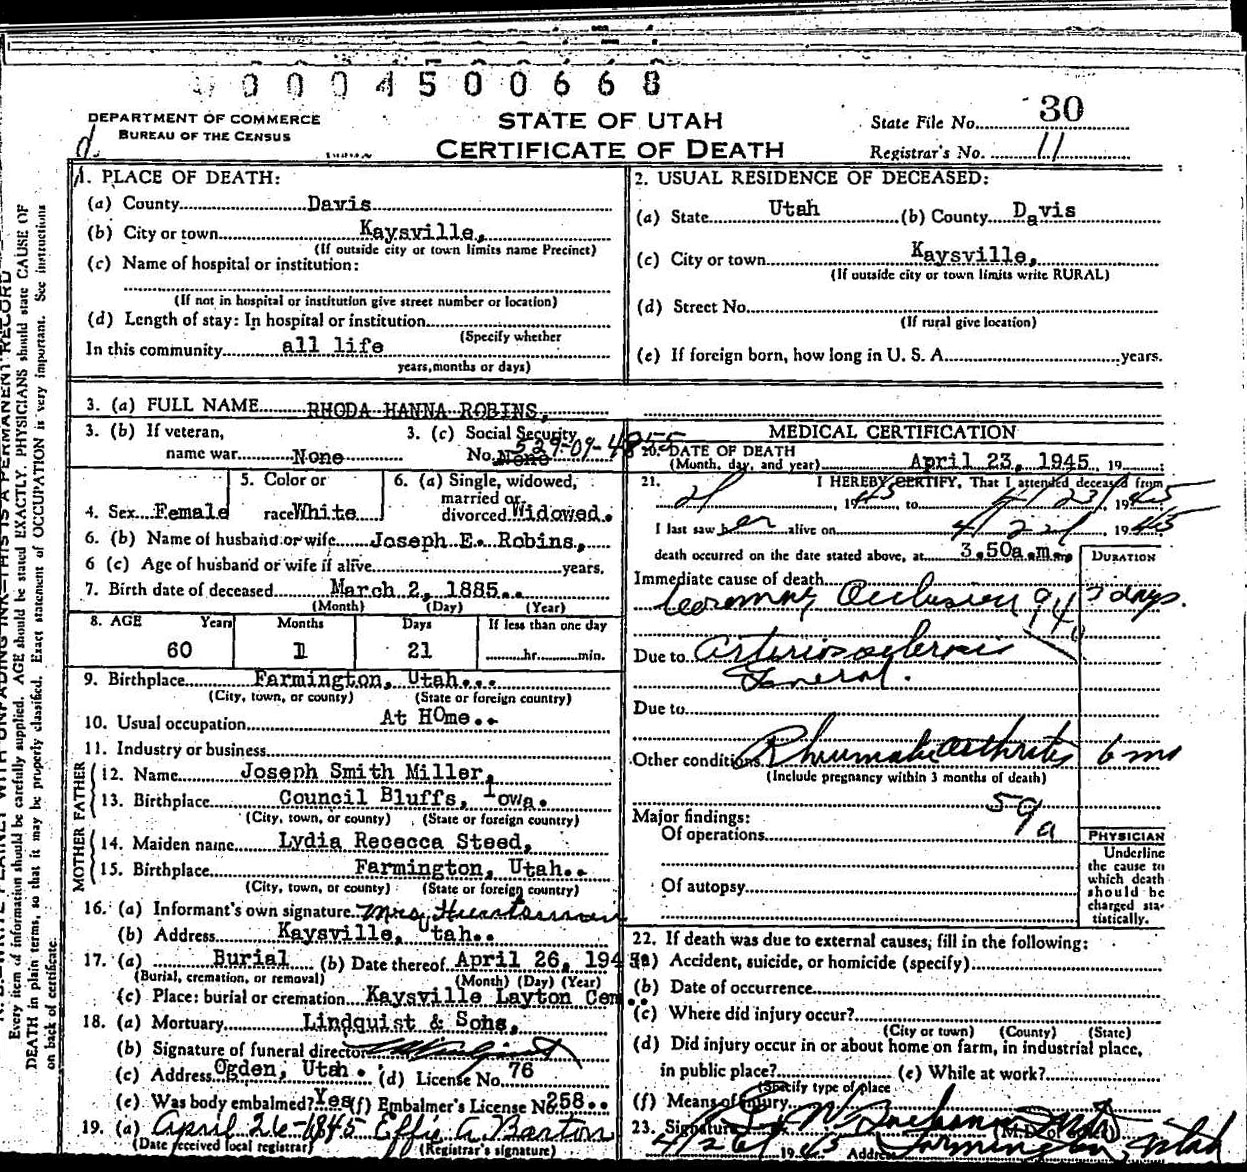 0004500668
DEPARTMENT OF COMMERCE
BUREAU OF THE CENSUS
d.
STATE OF UTAH
CERTIFICATE OF DEATH
State File No. 30
Registrar's No. 11
1. PLACE OF DEATH:
(a) County Davis
(b) City or town Kaysville,
(If outside city or town limits name Precinct)
(c) Name of hospital or institution:
(If not in hospital or institution give street number or location)
(d) Length of stay: In hospital or institution
(Specify whether
In this community all life
years, months or days)
2. USUAL RESIDENCE OF DECEASED:
(a) State Utah (b) County Davis
(c) City or town Kaysville,
(If outside city or town limits write RURAL)
(d) Street No.
(If rural give location)
(e) If foreign born, how long in U. S. A. years.
3. (a) FULL NAME RHODA HANNA ROBINS,
3. (b) If veteran,
name war None
3. (c) Social Security
No. None 529-09-4855
4. Sex Female
5. Color or
race White
6. (a) Single, widowed,
married or
divorced Widowed.
6. (b) Name of husband or wife Joseph E. Robins,
6 (c) Age of husband or wife if alive years.
7. Birth date of deceased March 2, 1885..
(Month) (Day) (Year)
8. AGE Years Months Days If less than one day
60 1 21 hr. min.
9. Birthplace Farmington, Utah...
(City, town, or county) (State or foreign country)
10. Usual occupation At HOme..
11. Industry or business
FATHER
12. Name Joseph Smith Miller,
13. Birthplace Council Bluffs, Iowa.
(City, town, or county) (State or foreign country)
MOTHER
14. Maiden name Lydia Rececca Steed,
15. Birthplace Farmington, Utah..
(City, town, or county) (State or foreign country)
16. (a) Informant's own signature Mrs. Huntsman
(b) Address Kaysville, Utah..
17. (a) Burial (b) Date thereof April 26, 1945.
(Burial, cremation, or removal) (Month) (Day) (Year)
(c) Place: burial or cremation Kaysville Layton Cem..
18. (a) Mortuary Lindquist & Sons,
(b) Signature of funeral director
(c) Address Ogden, Utah. (d) License No. 76
(e) Was body embalmed? Yes (f) Embalmer's License No. 258..
19. (a) April 26-1945 Effy A. Barton
(Date received local registrar) (Registrar's signature)
MEDICAL CERTIFICATION
20. DATE OF DEATH
(Month, day, and year) April 23, 1945., 19
21. I HEREBY CERTIFY, That I attended deceased from
21, 1945, to 4/23/, 1945
I last saw her alive on 4/22/, 1945
death occurred on the date stated above, at 3.50a.m.,
DURATION
Immediate cause of death
Coronary Occlusion 94a 3 days.
Due to Arteriosclerosis
General.
Due to
Other conditions Rheumatic arthritis 6 mo
(Include pregnancy within 3 months of death)
59a
Major findings:
Of operations
Of autopsy
PHYSICIAN
Underline
the cause to
which death
should be
charged sta-
tistically.
22. If death was due to external causes, fill in the following:
(a) Accident, suicide, or homicide (specify)
(b) Date of occurrence
(c) Where did injury occur?
(City or town) (County) (State)
(d) Did injury occur in or about home on farm, in industrial place,
in public place? (e) While at work?
(Specify type of place
(f) Means of injury
23. Signature
4/26/ 1945 Address Farmington, Utah
Every item of information should be carefully supplied. AGE should be stated EXACTLY. PHYSICIANS should state CAUSE OF
DEATH in plain terms, so that it may be properly classified. Exact statement of OCCUPATION is very important. See instructions
on back of certificate.